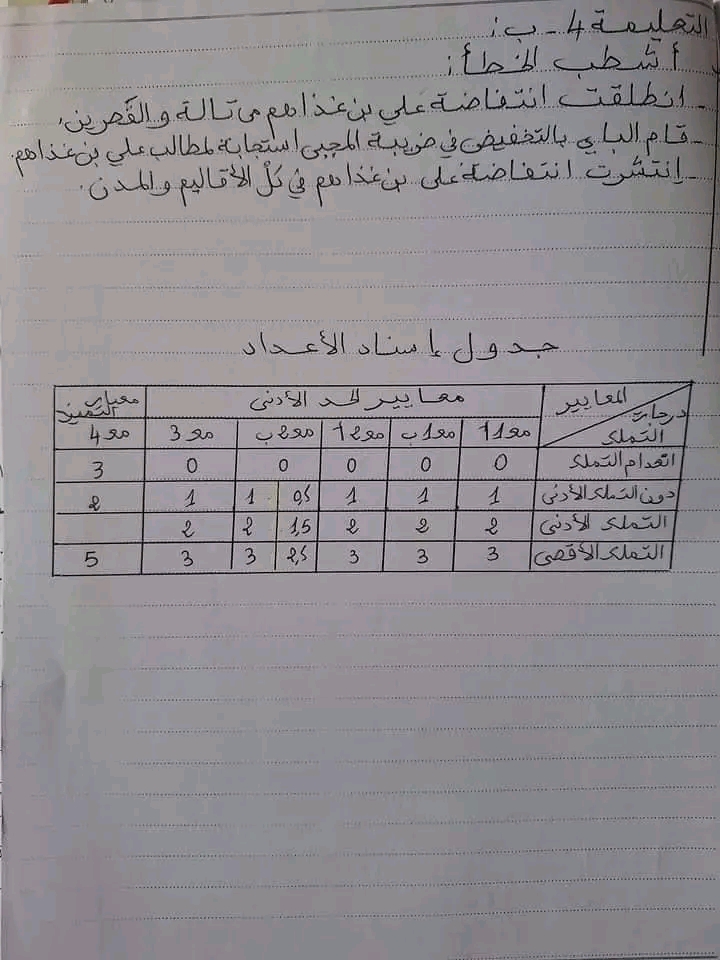 التعليمة 4 - ب:
أشطب الخطأ:
- انطلقت انتفاضة علي بن غذاهم من تالة والقصرين.
- قام الباي بالتخفيض في ضريبة المجبى استجابة لمطالب علي بن غذاهم.
- إنتشرت انتفاضة علي بن غذاهم في كلّ الأقاليم والمدن.
جدول إسناد الأعداد
المعايير معايير الحد الأدنى معيار التميز
درجات التملك مع 1أ مع 1ب مع 2أ مع 2ب مع 3 مع 4
انعدام التملك 0 0 0 0 0 3
دون التملك الأدنى 1 1 1 0,5 1 1 2
التملك الأدنى 2 2 2 1,5 2 2
التملك الأقصى 3 3 3 2,5 3 3 5